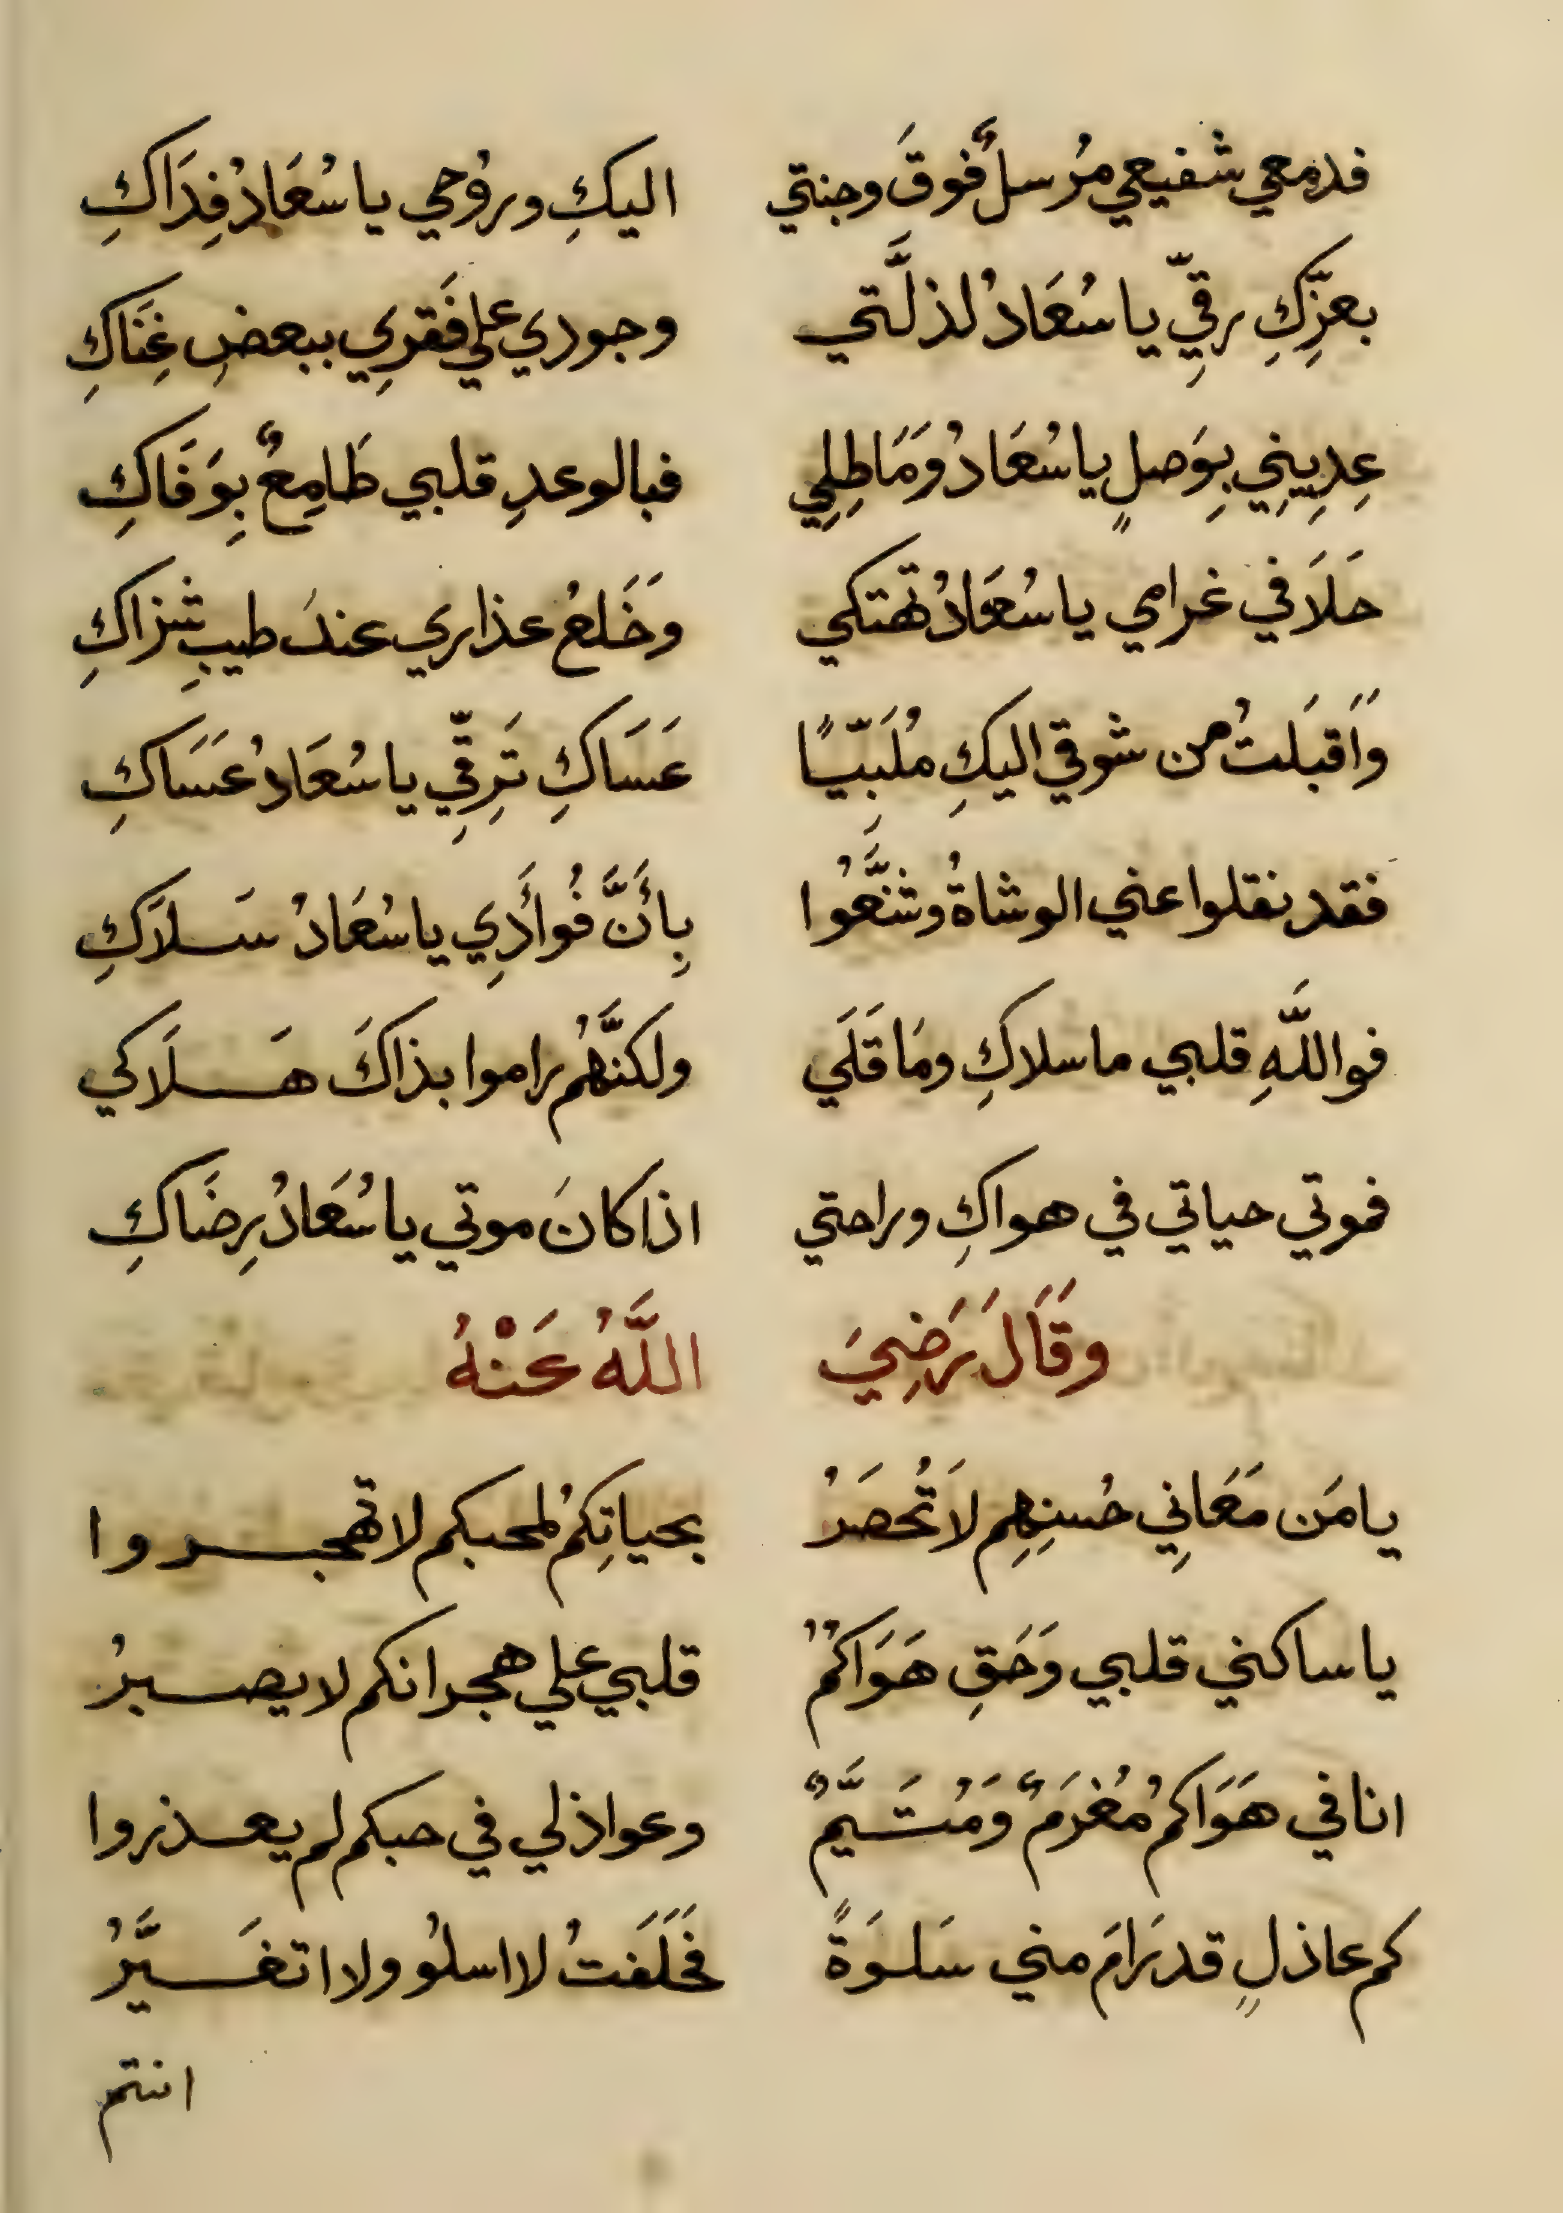 فدمعي شفيعي مُرسلٌ فوقَ وجنتي اليكِ وروُحي يا سُعَادُ فِدَاكِ
بعزِّكِ رقِيّ يا سُعَادُ لذلَّتي وجودي علي فَقرِي ببعضِ غِنَاكِ
عِدِيِنِي بِوَصلٍ يا سُعَادُ وَمَاطِلِي فبالوعدِ قلبي طَامِعٌ بِوَفَاكِ
حَلَا في غرامي يا سُعَادُ تهتكي وَخَلعُ عذاري عندَ طيبِ شزاكِ
وَاَقبَلتُ من شوقي اليكِ مُلَبِيّـًا عَسَاكِ تَرِقِّي يا سُعَادُ عَسَاكِ
فقد نقلوا عني الوشاةُ وشنَّعُوا بِأَنَّ فُوأَدِي يا سُعَادُ سَـلاَكِ
فواللَّهِ قلبي ما سلاكِ ومَا قَلَي ولكنَّهُم راموا بذاكَ هَـلَاكي
فموتي حياتي في هواكِ وراحتي اذا كانَ موتي يا سُعَادُ بِرِضَاكِ
وَقَالَ رَضِيَ اللَّهُ عَنْهُ
يا مَن مَعَانِي حُسنِهِم لاَ تُحصَرُ بحياتِكُم لمحبكم لا تهجـروا
يا ساكني قلبي وَحَقِ هَوَاكُمُ قلبي علي هجرانكم لا يصـبرُ
انا في هَوَاكمُ مُغرَمٌ وَمُتَـيَّمٌ وعواذلي في حبكم لم يعـذروا
كم عاذلٍ قد رَامَ مني سَلـوَةً فَحَلَفتُ لا اسلوُ ولا اتغَـيَّرُ
انتم